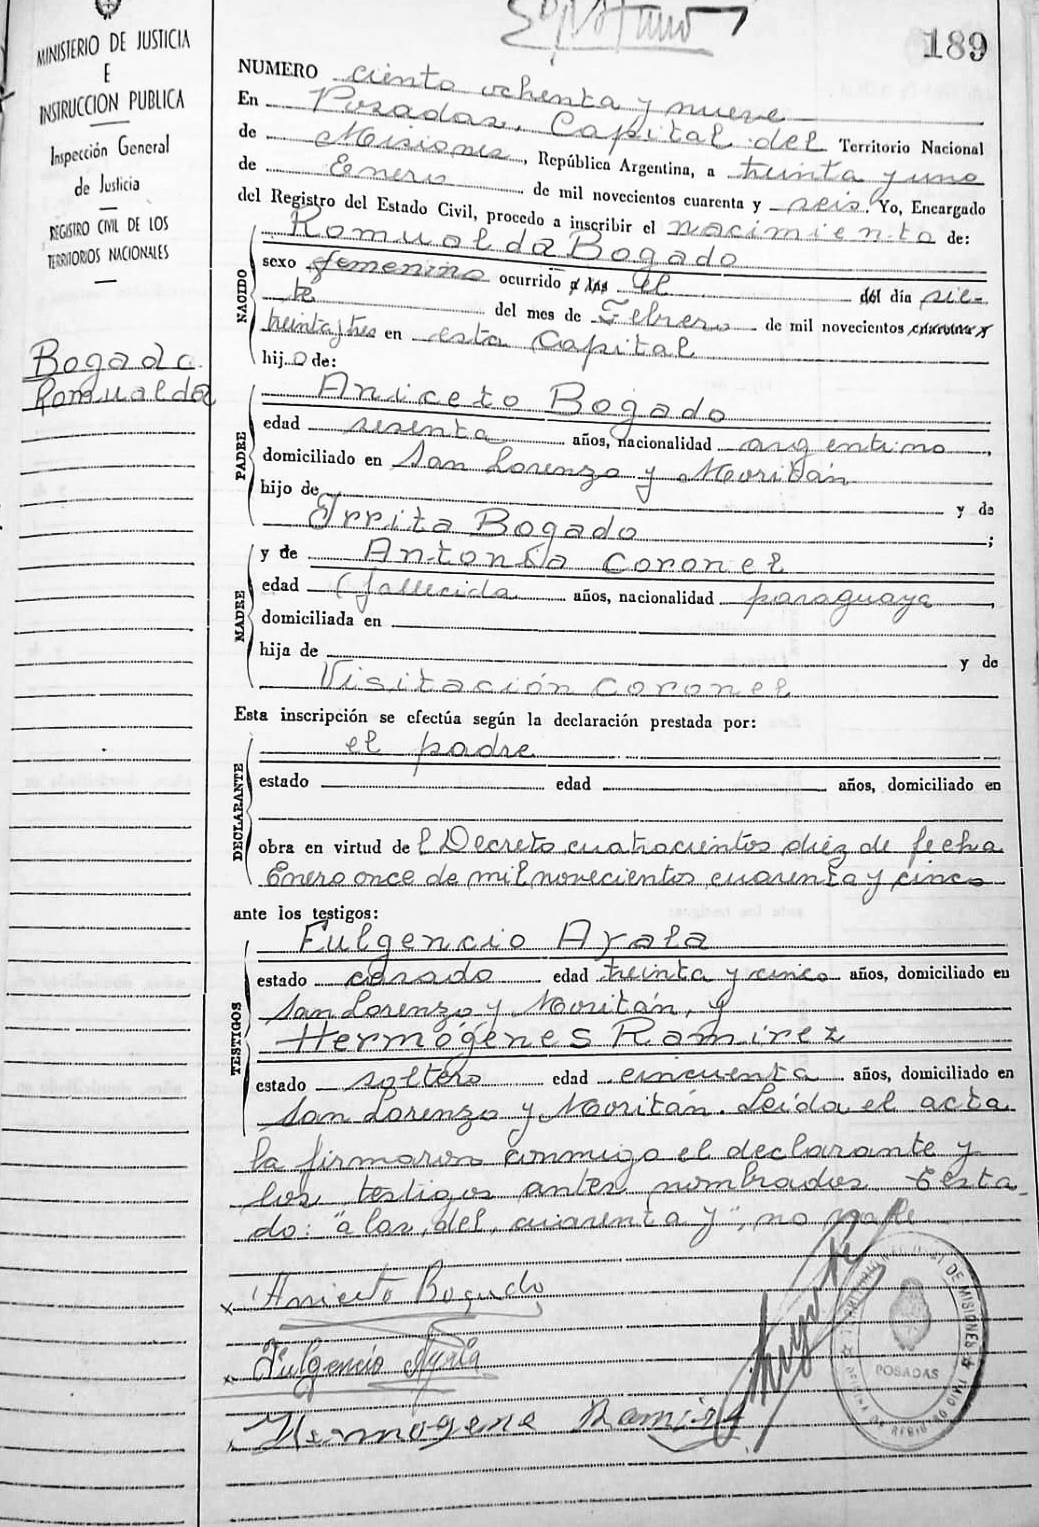 MINISTERIO DE JUSTICIA
E
INSTRUCCION PUBLICA
Inspección General
de Justicia
REGISTRO CIVIL DE LOS
TERRITORIOS NACIONALES
Bogado
Romualda
189
NUMERO ciento ochenta y nueve
En Posadas, Capital del Territorio Nacional
de Misiones, República Argentina, a treinta y uno
de Enero de mil novecientos cuarenta y seis. Yo, Encargado
del Registro del Estado Civil, procedo a inscribir el nacimiento de:
NACIDO
Romualda Bogado
sexo femenino ocurrido a las el del día sie-
te del mes de Febrero de mil novecientos cuarenta y
treinta y tres en esta Capital
hijo de:
PADRE
Aniceto Bogado
edad sesenta años, nacionalidad argentino,
domiciliado en San Lorenzo y Moritán
hijo de y de
Irrita Bogado ;
MADRE
y de Antonia Coronel
edad (fallecida años, nacionalidad paraguaya,
domiciliada en
hija de y de
Visitación Coronel
Esta inscripción se efectúa según la declaración prestada por:
DECLARANTE
el padre
estado edad años, domiciliado en
obra en virtud de l Decreto cuatrocientos diez de fecha
Enero once de mil novecientos cuarenta y cinco
ante los testigos:
TESTIGOS
Fulgencio Ayala
estado casado edad treinta y cinco años, domiciliado en
San Lorenzo y Moritán, y
Hermógenes Ramirez
estado soltero edad cincuenta años, domiciliado en
San Lorenzo y Moritán. Leída el acta
la firmaron conmigo el declarante y
los testigos antes nombrados. Testa-
do: "a las, del, cuarenta y", no vale
x Aniceto Bogado
x Fulgencio Ayala
Hermogene Ramirez
DE MISIONES
POSADAS